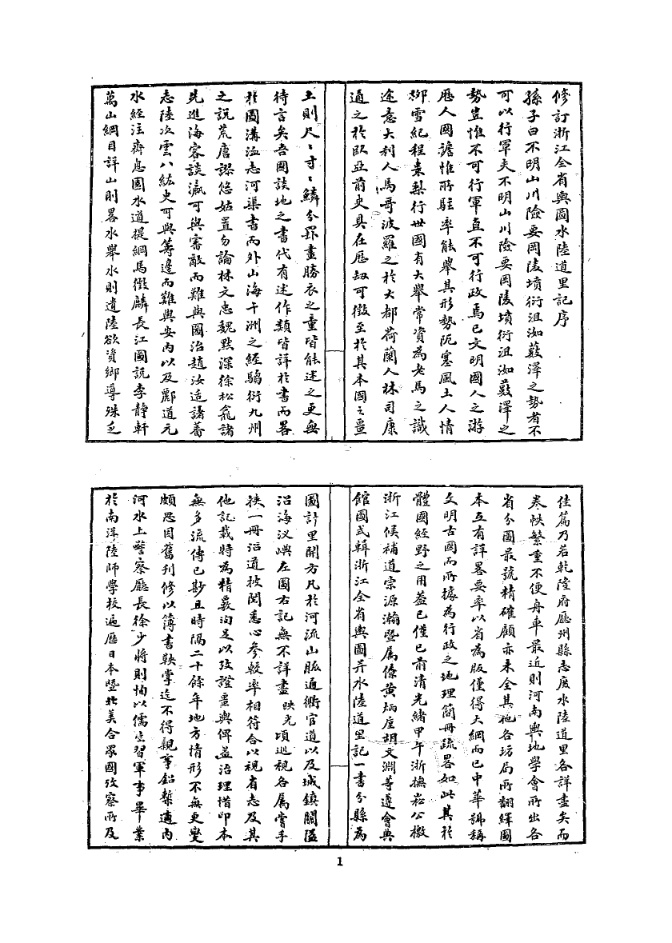 修訂浙江全省輿圖水陸道里記序
孫子曰不明山川險要岡陵墳衍沮洳藪澤之勢者不
可以行軍夫不明山川險要岡陵墳衍沮洳藪澤之
勢豈惟不可行軍直不可行政焉已文明國人之游
歷人國讅惟所駐率能舉其形勢阨塞風土人情
鄉雪紀程棗梨行世國有大舉常資為老馬之識
途意大利人馬哥波羅之於大都荷蘭人林司康
通之於臥亞前史具在歷劫可徵至於其本國之畺
土則尺〻寸〻鱗分罫畫勝衣之童皆能述之更無
待言矣吾國談地之書代有述作類皆詳於書而畧
於圖溝洫志河渠書而外山海十洲之經騶衍九州
之說荒唐謬悠姑置勿論林文忠魏默深徐松龕諸
先進海客談瀛可與審敵而難與國治趙汝适諸蕃
志陸次雲八紘史可與籌邊而難與安內以及酈道元
水經注齊息園水道提綱馬徵麟長江圖說李靜軒
萬山綱目詳山則畧水舉水則遺陸欲資鄉導殊乏
佳篇乃若乾隆府廳州縣志於水陸道里各詳盡矣而
卷帙繁重不便舟車最近則河南輿地學會所出各
省分圖最號精確顧亦未全其他各坊局所翻繹圖
本互有詳畧要率以省為版僅得大綱而已中華號稱
文明古國而所據為行政之地理簡冊疏畧如此其於
體國經野之用蓋已僅已前清光緒甲午浙撫崧公檄
浙江候補道宗源瀚暨屬僚黃炳垕胡文淵等遵會典
館圖式輯浙江全省輿圖并水陸道里記一書分縣為
圖計里開方凡於河流山脈通衢官道以及城鎮關隘
沿海汊嶼左圖右記無不詳盡映光頃巡視各屬嘗手
挾一冊沿道披閱悉心參較率相符合以視省志及其
他記載特為精覈洵足以攷證畺輿俾益治理惜印本
無多流傳已尠且時隔二十餘年地方情形不無更變
頗思因舊刊修以簿書鞅掌迄不得親事鉛槧適內
河水上警察廳長徐少將則恂以儒生習軍事畢業
於南洋陸師學校遍歷日本暨北美合眾國攷察所及
1